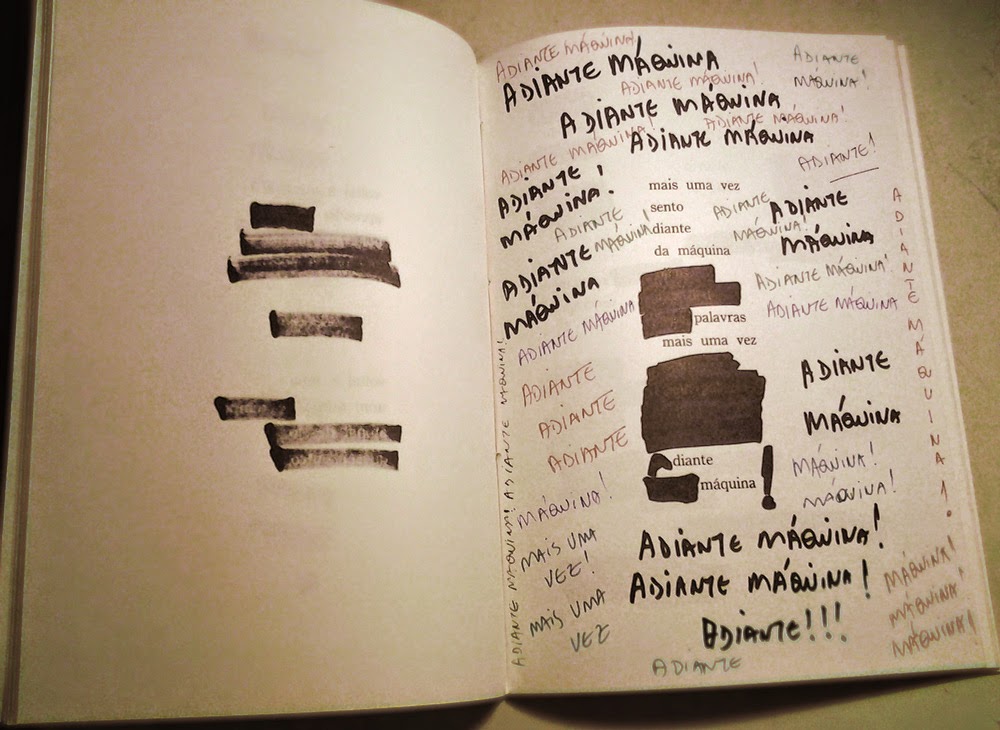 ADIANTE MÁQUINA!
ADIANTE MÁQUINA
ADIANTE MÁQUINA!
ADIANTE
MÁQUINA!
ADIANTE MÁQUINA
ADIANTE MÁQUINA!
ADIANTE MÁQUINA
ADIANTE MÁQUINA!
ADIANTE!
ADIANTE
MÁQUINA!
ADIANTE
MÁQUINA!
mais uma vez
sento
diante
da máquina
ADIANTE
MÁQUINA!
ADIANTE
MÁQUINA
ADIANTE
MÁQUINA
ADIANTE MÁQUINA!
ADIANTE MÁQUINA
ADIANTE MÁQUINA
palavras
mais uma vez
ADIANTE
ADIANTE
ADIANTE
ADIANTE
MÁQUINA
diante
máquina
MÁQUINA!
MÁQUINA!
MÁQUINA!
MAIS UMA
VEZ!
MAIS UMA
VEZ
ADIANTE MÁQUINA!
ADIANTE MÁQUINA!
ADIANTE!!!
ADIANTE
MÁQUINA!
MÁQUINA!
MÁQUINA!
ADIANTE MÁQUINA! ADIANTE MÁQUINA!
ADIANTE MÁQUINA!